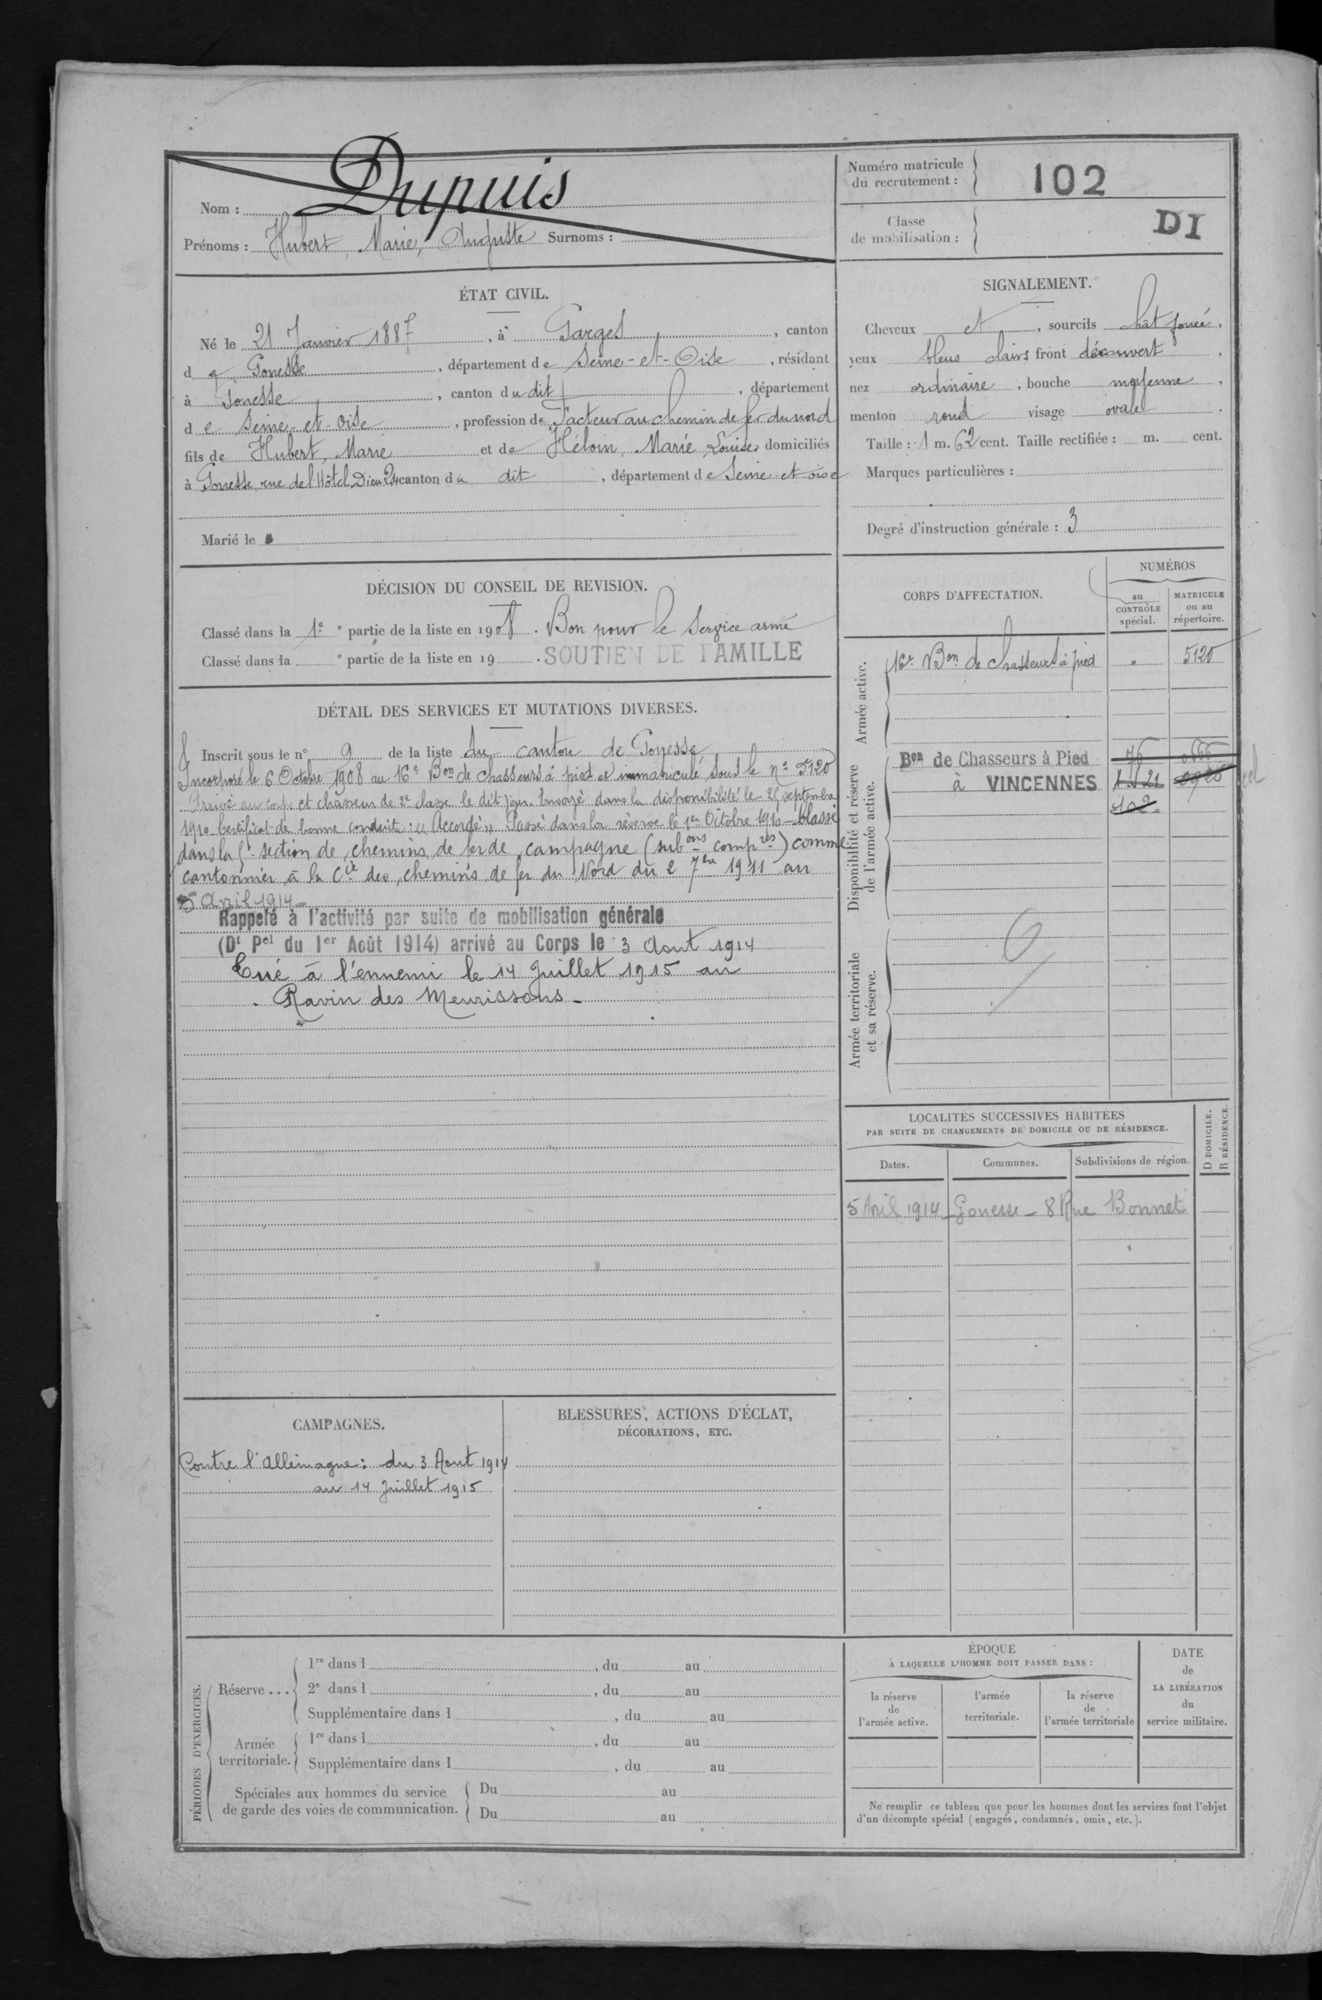 Nom : Dupuis
Prénoms : Hubert, Marie, Auguste Surnoms :
Numéro matricule
du recrutement :
102
Classe
de mobilisation :
DI
ÉTAT CIVIL.
Né le 21 Janvier 1887, à Garges, canton
de Gonesse, département de Seine-et-Oise, résidant
à Gonesse, canton du dit, département
de Seine-et-Oise, profession de Facteur au chemin de fer du nord
fils de Hubert, Marie et de Héloin, Marie, Louise domiciliés
à Gonesse rue de l'Hôtel Dieu 24 canton du dit, département de Seine et oise
Marié le
SIGNALEMENT.
Cheveux et, sourcils chât foncé,
yeux bleus clairs front découvert,
nez ordinaire, bouche moyenne,
menton rond visage ovale.
Taille : 1 m. 62 cent. Taille rectifiée : m. cent.
Marques particulières :
Degré d'instruction générale : 3
DÉCISION DU CONSEIL DE REVISION.
Classé dans la 1e partie de la liste en 1908. Bon pour le service armé
Classé dans la e partie de la liste en 19 . SOUTIEN DE FAMILLE
DÉTAIL DES SERVICES ET MUTATIONS DIVERSES.
Inscrit sous le n° 9 de la liste du canton de Gonesse
Incorporé le 6 Octobre 1908 au 16e Bon de chasseurs à pied et immatriculé sous le n° 5120
Arrivé au corps et chasseur de 2e classe le dit jour. Envoyé dans la disponibilité le 25 septembre
1910 Certificat de bonne conduite : "Accordé" Passé dans la réserve le 1er Octobre 1910 - Classé
dans la section de chemins de fer de campagne (subons compres) comme
cantonnier à la Cie des chemins de fer du Nord du 2 7bre 1911 au
5 Avril 1914 -
Rappelé à l'activité par suite de mobilisation générale
(Dt Pel du 1er Août 1914) arrivé au Corps le 3 Aout 1914
Tué à l'ennemi le 14 Juillet 1915 au
Ravin des Meurissons -
CORPS D'AFFECTATION.
NUMÉROS
au
CONTRÔLE
spécial.
MATRICULE
ou au
répertoire.
Armée active.
16e Bon de Chasseurs à pied " 5120
Disponibilité et réserve
de l'armée active.
Bon de Chasseurs à Pied 76
à VINCENNES
102
Armée territoriale
et sa réserve.
LOCALITÉS SUCCESSIVES HABITÉES
PAR SUITE DE CHANGEMENTS DE DOMICILE OU DE RÉSIDENCE.
Dates.
Communes.
Subdivisions de région.
D DOMICILE.
R RÉSIDENCE.
5 Avril 1914 - Gonesse - 8 Rue Bonnet
CAMPAGNES.
Contre l'Allemagne : du 3 Aout 1914
au 14 Juillet 1915
BLESSURES, ACTIONS D'ÉCLAT,
DÉCORATIONS, ETC.
PÉRIODES D'EXERCICES.
Réserve ...
1re dans l , du au
2e dans l , du au
Supplémentaire dans l , du au
Armée
territoriale.
1re dans l , du au
Supplémentaire dans l , du au
Spéciales aux hommes du service
de garde des voies de communication.
Du au
Du au
ÉPOQUE
À LAQUELLE L'HOMME DOIT PASSER DANS :
la réserve
de
l'armée active.
l'armée
territoriale.
la réserve
de
l'armée territoriale
DATE
de
LA LIBÉRATION
du
service militaire.
Ne remplir ce tableau que pour les hommes dont les services font l'objet
d'un décompte spécial (engagés, condamnés, omis, etc.).